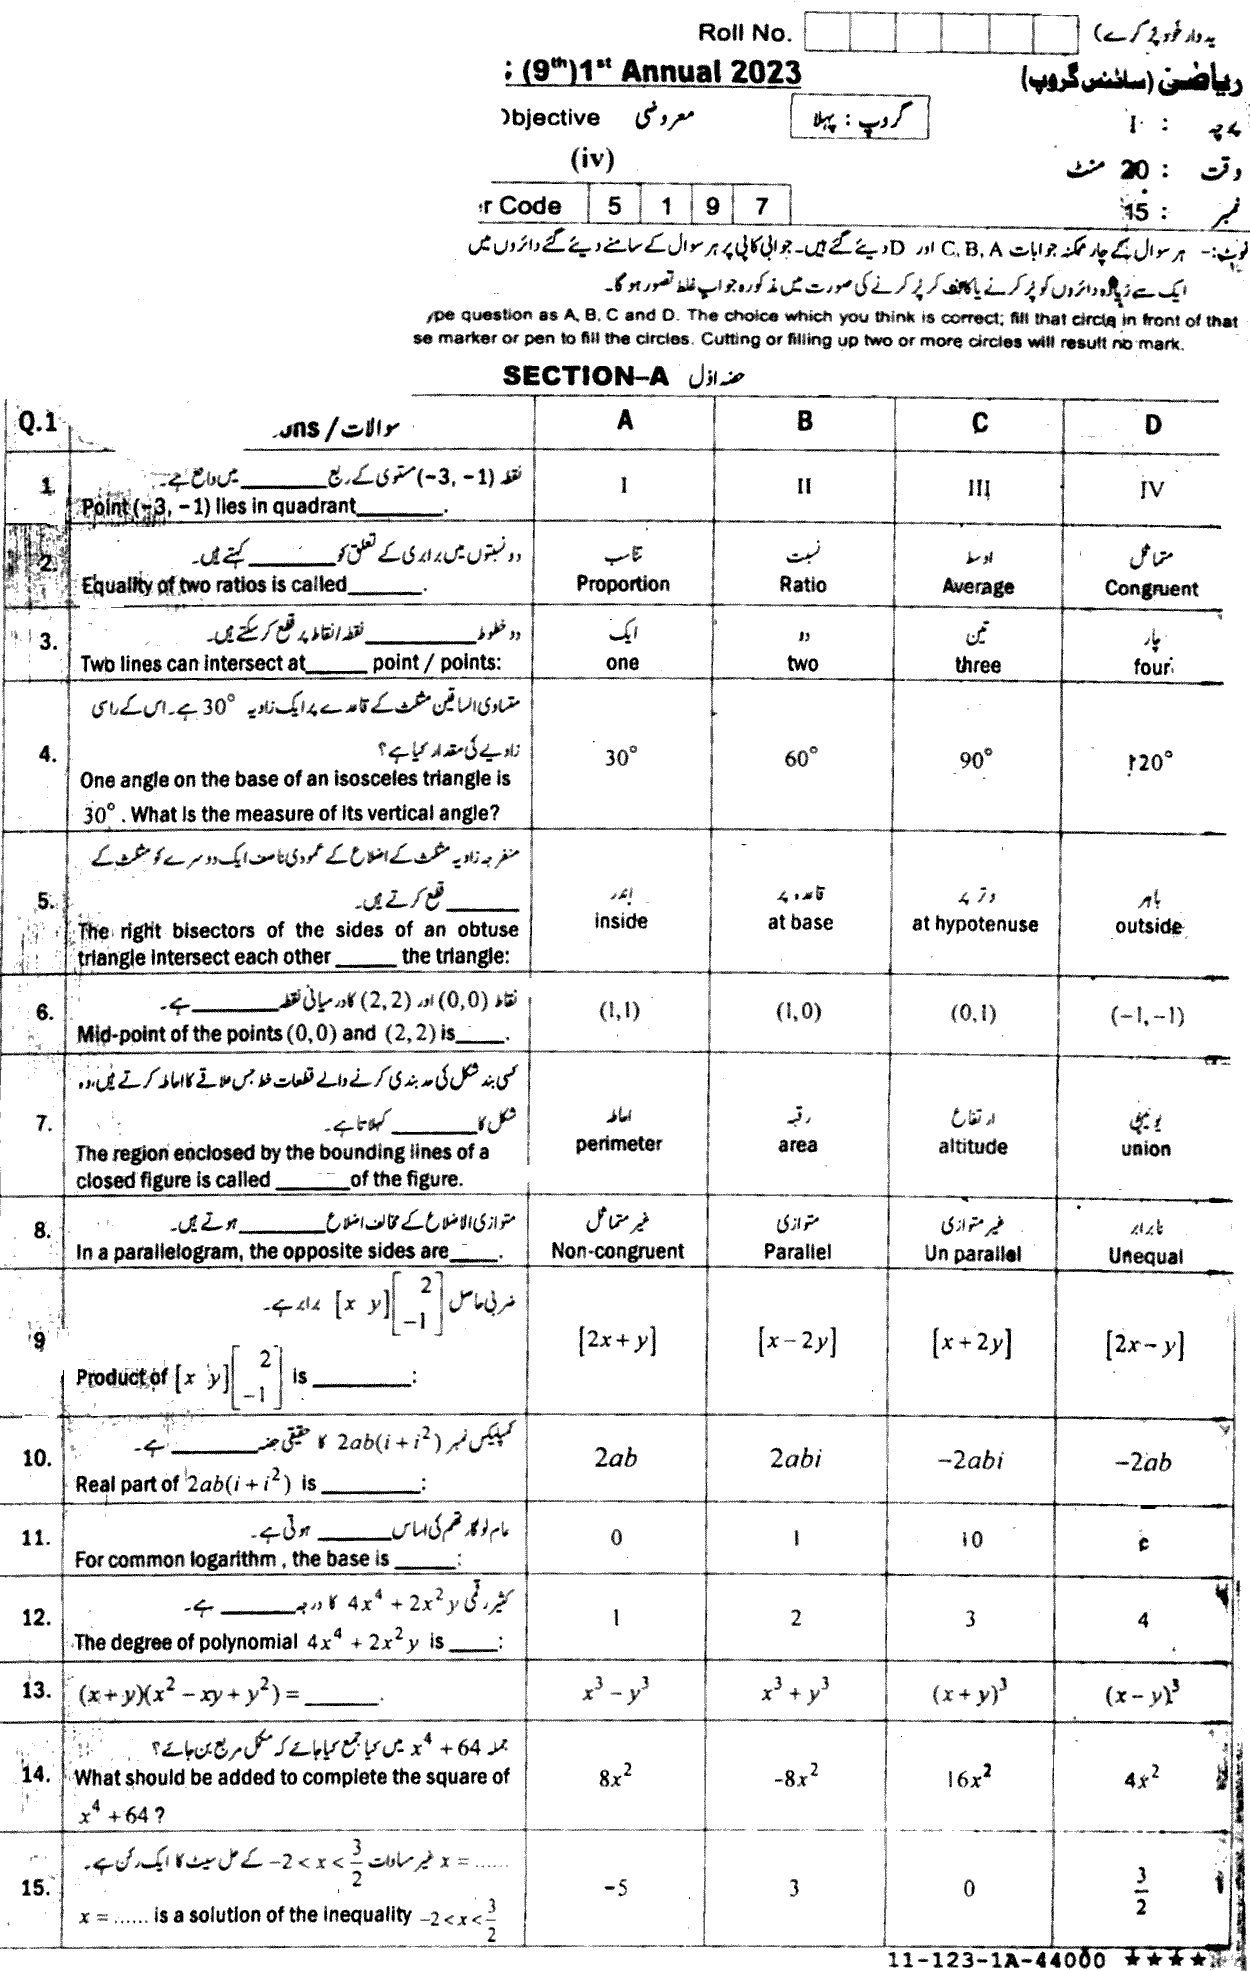 Roll No. یدوار خود پُر کرے)
: (9th)1st Annual 2023 ریاضی (سائنس گروپ)
Objective معروضی گروپ : پہلا پرچہ : I
(iv) وقت : 20 منٹ
r Code 5 1 9 7 نمبر : 15
نوٹ:- ہر سوال کے چار ممکنہ جوابات C, B, A اور D دیئے گئے ہیں۔ جوابی کاپی پر ہر سوال کے سامنے دیئے گئے دائروں میں
ایک سے زیادہ دائروں کو پُر کرنے یا کاٹ کر پُر کرنے کی صورت میں مذکورہ جواب غلط تصور ہوگا۔
ype question as A, B, C and D. The choice which you think is correct; fill that circle in front of that
se marker or pen to fill the circles. Cutting or filling up two or more circles will result no mark.
SECTION–A حصہ اوّل
Q.1 ons / سوالات A B C D
نقطہ (−3, −1) مستوی کے ربع ______ میں واقع ہے۔
1. Point (−3, −1) lies in quadrant______. I II III IV
دو نسبتوں میں برابری کے تعلق کو ______ کہتے ہیں۔ تناسب نسبت اوسط متماثل
2. Equality of two ratios is called______. Proportion Ratio Average Congruent
دو خطوط ______ نقطہ/نقاط پر قطع کر سکتے ہیں۔ ایک دو تین چار
3. Two lines can intersect at_____ point / points: one two three four
متساوی الساقین مثلث کے قاعدے پر ایک زاویہ 30° ہے۔ اس کے راسی
زاویے کی مقدار کیا ہے؟
4. One angle on the base of an isosceles triangle is 30° 60° 90° 120°
30° . What is the measure of its vertical angle?
منفرجہ زاویہ مثلث کے اضلاع کے عمودی ناصف ایک دوسرے کو مثلث کے
______ قطع کرتے ہیں۔ اندر قاعدہ پر وتر پر باہر
5. The right bisectors of the sides of an obtuse inside at base at hypotenuse outside
triangle intersect each other _____ the triangle:
نقاط (0,0) اور (2,2) کا درمیانی نقطہ ______ ہے۔
6. Mid-point of the points (0,0) and (2,2) is____. (1,1) (1,0) (0,1) (−1,−1)
کسی بند شکل کی حد بندی کرنے والے قطعات خط جس علاقے کا احاطہ کرتے ہیں، وہ
شکل کا ______ کہلاتا ہے۔ احاطہ رقبہ ارتفاع یونین
7. The region enclosed by the bounding lines of a perimeter area altitude union
closed figure is called ______of the figure.
متوازی الاضلاع کے مخالف اضلاع ______ ہوتے ہیں۔ غیر متماثل متوازی غیر متوازی نابرابر
8. In a parallelogram, the opposite sides are____. Non-congruent Parallel Un parallel Unequal
ضربی حاصل [x y][2 −1] برابر ہے۔
9 Product of [x y][2 −1] is ________: [2x+y] [x−2y] [x+2y] [2x−y]
کمپلیکس نمبر 2ab(i+i²) کا حقیقی حصہ ______ ہے۔
10. Real part of 2ab(i+i²) is ________: 2ab 2abi −2abi −2ab
عام لوگارتھم کی اساس ______ ہوتی ہے۔
11. For common logarithm , the base is _____: 0 1 10 e
کثیر رقمی 4x⁴ + 2x²y کا درجہ ______ ہے۔
12. The degree of polynomial 4x⁴ + 2x²y is ____: 1 2 3 4
13. (x+y)(x²−xy+y²) = ______. x³−y³ x³+y³ (x+y)³ (x−y)³
جملہ x⁴ + 64 میں کیا جمع کیا جائے کہ مکمل مربع بن جائے؟
14. What should be added to complete the square of 8x² -8x² 16x² 4x²
x⁴ + 64 ?
x = ...... غیر مساوات −2 < x < 3/2 کے حل سیٹ کا ایک رکن ہے۔
15. x = ...... is a solution of the inequality −2<x<3/2 −5 3 0 3/2
11-123-1A-44000 ★★★★